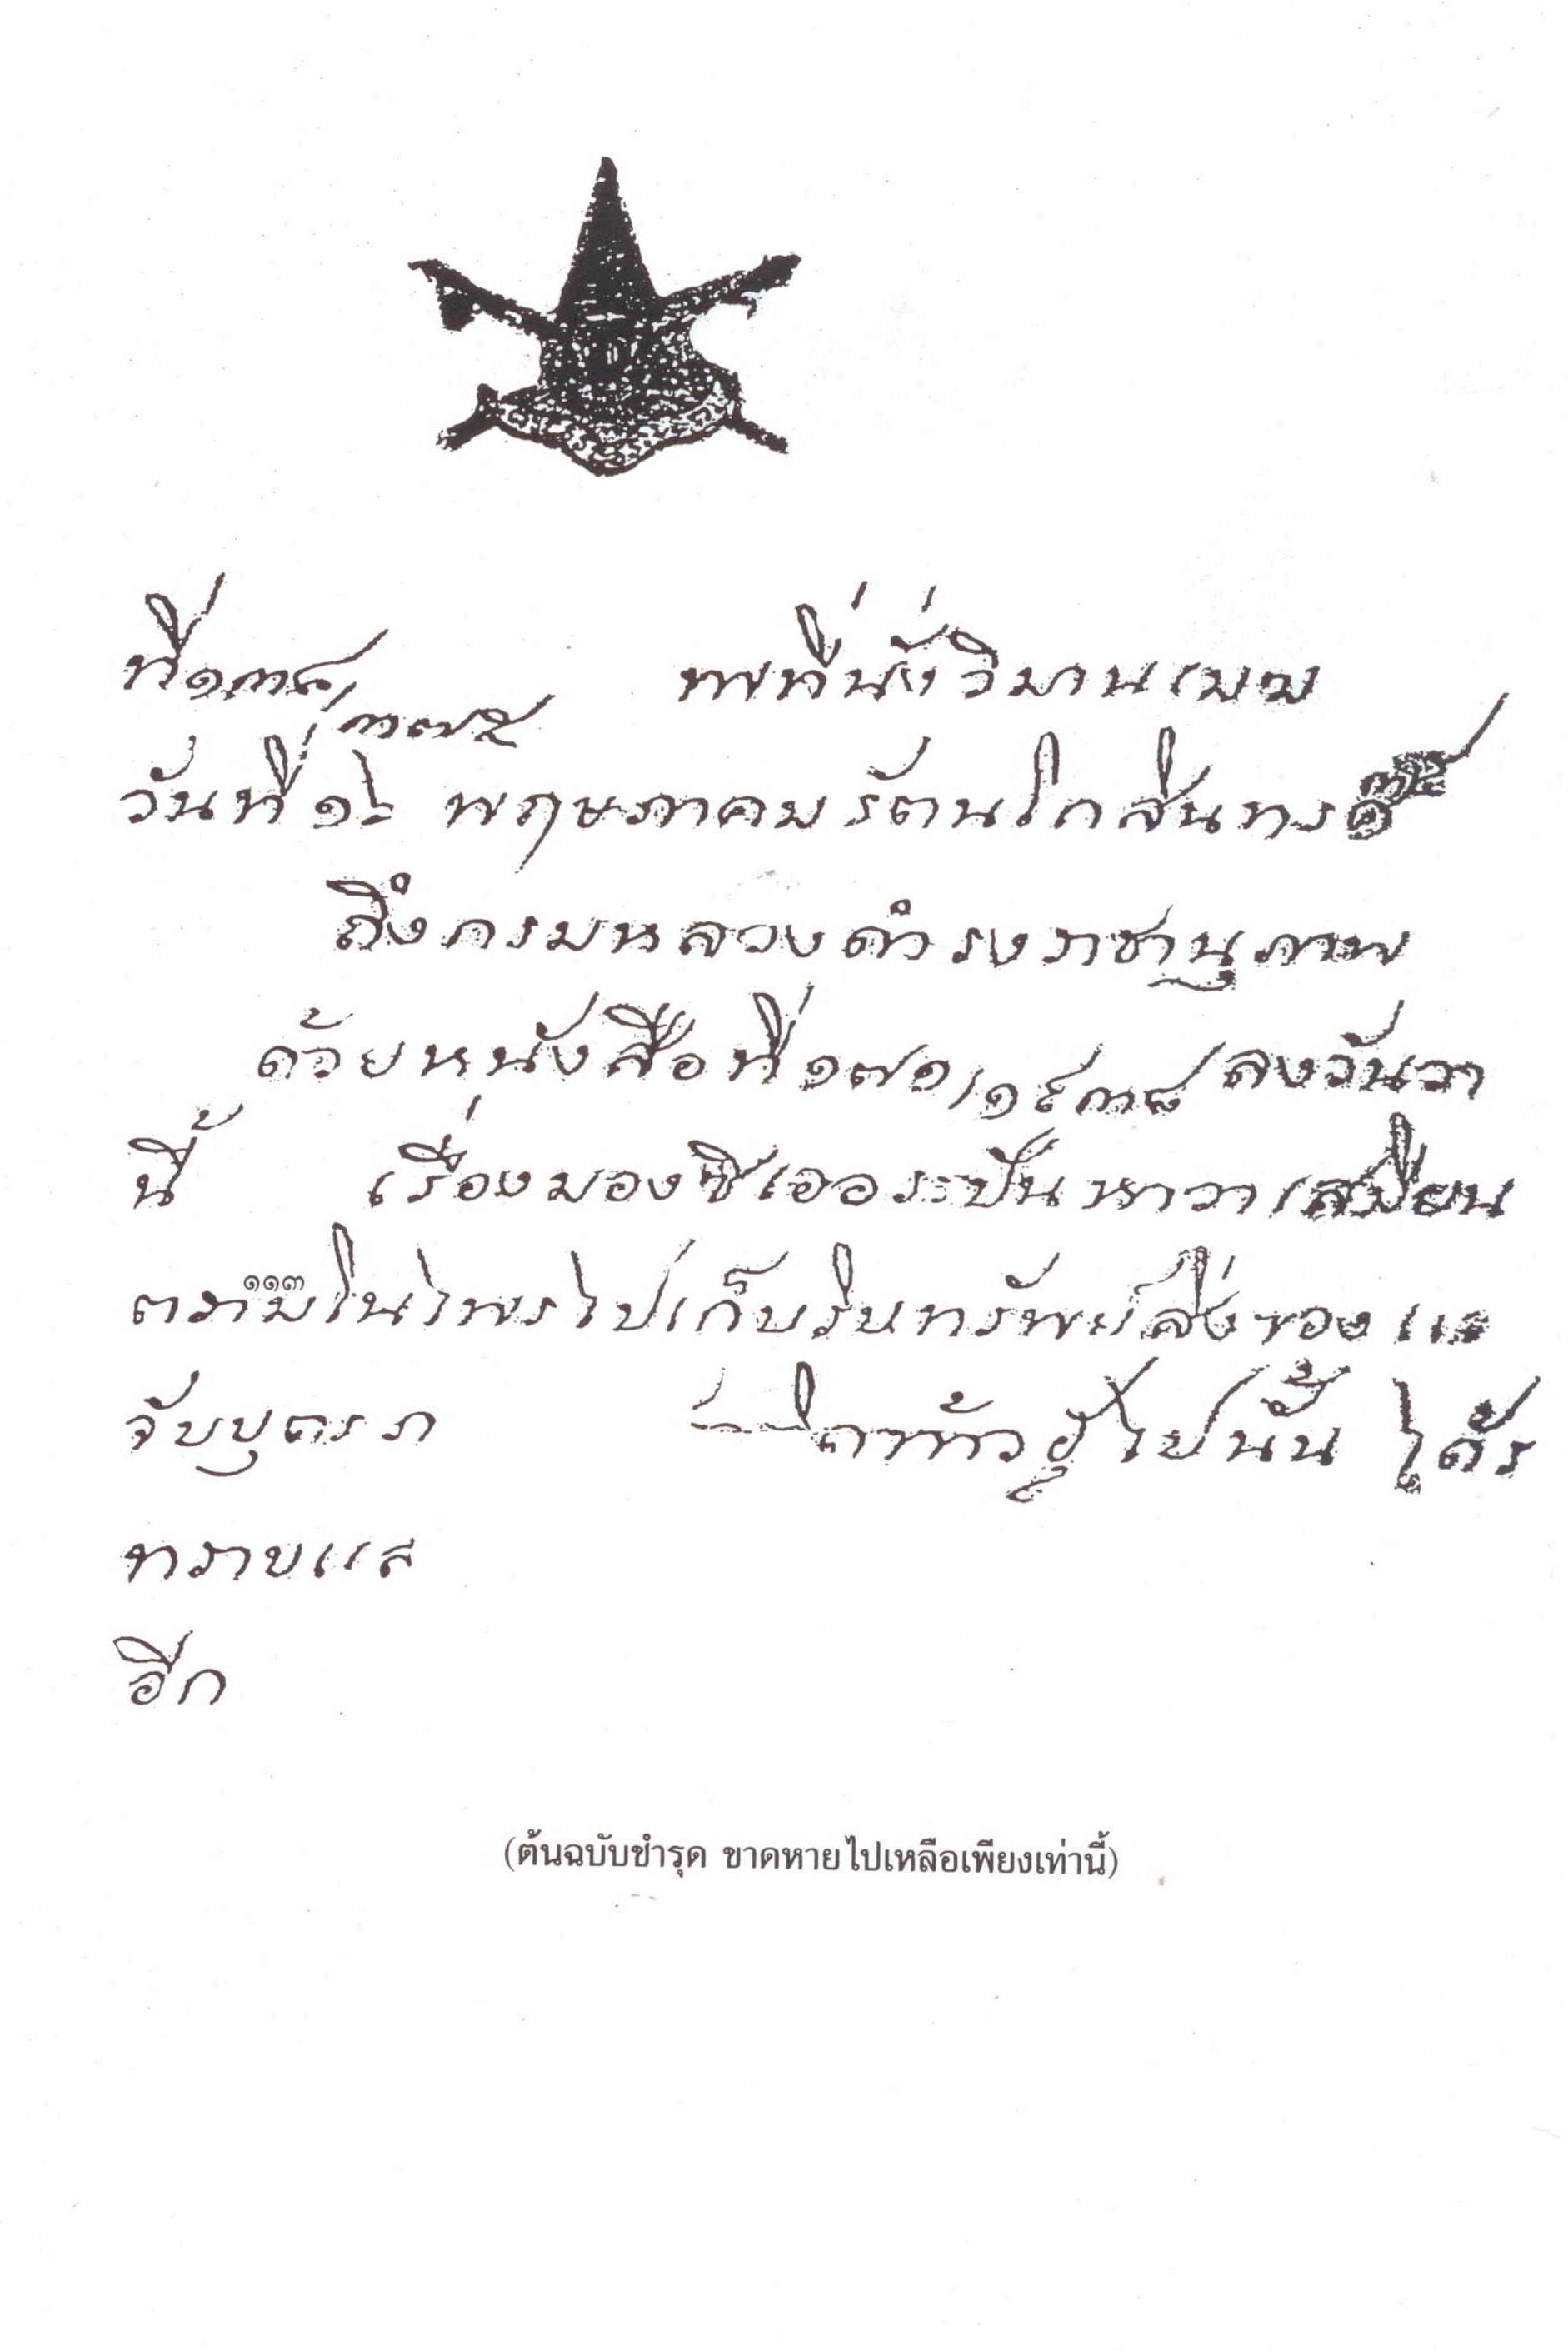 ที่ ๑๓๘/๓๗๕ พที่นั่งวิมานเมฆ
วันที่ ๑๖ พฤษภาคม รัตนโกสินทร
ถึง กรมหลวงดำรงราชานุภาพ
ด้วยหนังสือที่ ๑๗๑/๑๕๓๘ ลงวันวา
นี้ เรื่องมองซิเออระปิน หาวาเสมียน
ตราม ๑๑๓ โนไพรไปเก็บริบทรัพย์สิ่งของแล
จับบุตรภ ท้าวอู ไปนั้น ได้ร
ทราบแล
อีก
(ต้นฉบับชำรุด ขาดหายไปเหลือเพียงเท่านี้)